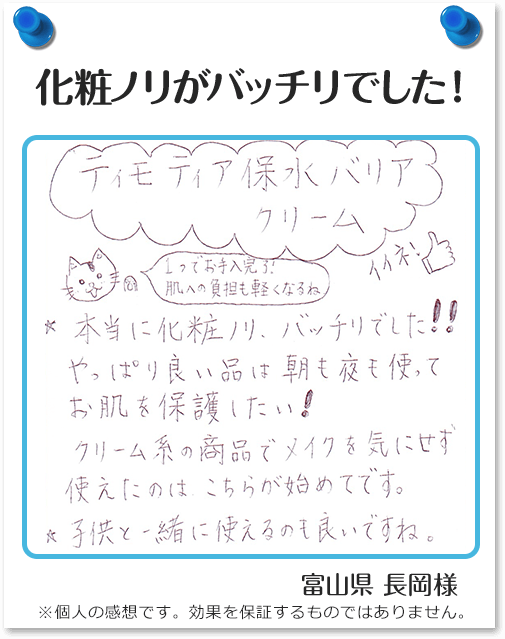 化粧ノリがバッチリでした!
ティモティア保水バリア
クリーム
1つでお手入完了!
肌への負担も軽くなるね
イイネ!
* 本当に化粧ノリ、バッチリでした!!
やっぱり良い品は朝も夜も使って
お肌を保護したい!
クリーム系の商品でメイクを気にせず
使えたのは、こちらが始めてです。
* 子供と一緒に使えるのも良いですね。
富山県 長岡様
※個人の感想です。効果を保証するものではありません。